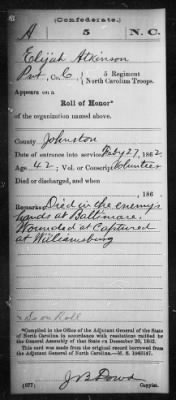 (Confederate.)
A 5 N. C.
Elijah Atkinson
Pvt, Co. C, 5 Regiment
North Carolina Troops.
Appears on a
Roll of Honor*
of the organization named above.
County Johnston
Date of entrance into service July 27, 1862.
Age 42; Vol. or Conscript Volunteer
Died or discharged, and when
, 186 .
Remarks: Died in the enemy's
hands at Baltimore.
Wounded at Captured
at Williamsburg
x So on Roll
*Compiled in the Office of the Adjutant General of the State
of North Carolina in accordance with resolutions ratified by
the General Assembly of that State on December 20, 1862.
This card was made from the original record borrowed from
the Adjutant General of North Carolina.—M. S.
(637) J B Dowd
Copyist.